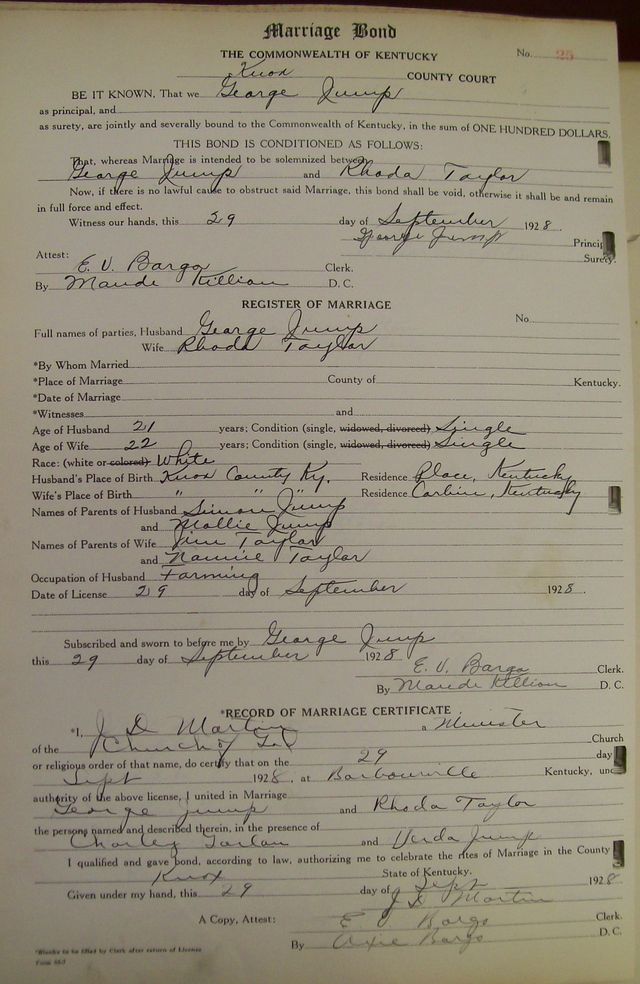 Marriage Bond
THE COMMONWEALTH OF KENTUCKY No. 25
Knox COUNTY COURT
BE IT KNOWN, That we George Jump
as principal, and
as surety, are jointly and severally bound to the Commonwealth of Kentucky, in the sum of ONE HUNDRED DOLLARS.
THIS BOND IS CONDITIONED AS FOLLOWS:
That, whereas Marriage is intended to be solemnized between
George Jump and Rhoda Taylor
Now, if there is no lawful cause to obstruct said Marriage, this bond shall be void, otherwise it shall be and remain
in full force and effect.
Witness our hands, this 29 day of September 1928.
George Jump Princip
Attest: Surety.
E. V. Bargo Clerk.
By Maude Killion D. C.
REGISTER OF MARRIAGE
No.
Full names of parties, Husband George Jump
Wife Rhoda Taylor
*By Whom Married
*Place of Marriage County of Kentucky.
*Date of Marriage
*Witnesses and
Age of Husband 21 years; Condition (single, widowed, divorced) Single
Age of Wife 22 years; Condition (single, widowed, divorced) Single
Race: (white or colored) White
Husband's Place of Birth Knox County Ky. Residence Place, Kentucky
Wife's Place of Birth " " " Residence Corbin, Kentucky
Names of Parents of Husband Simon Jump
and Mollie Jump
Names of Parents of Wife Jim Taylor
and Nannie Taylor
Occupation of Husband Farming
Date of License 29 day of September 1928.
Subscribed and sworn to before me by George Jump
this 29 day of September 1928
E. V. Bargo Clerk.
By Maude Killion D. C.
*RECORD OF MARRIAGE CERTIFICATE
*I, J D Martin a Minister
of the Church of God Church
or religious order of that name, do certify that on the 29 day
Sept 1928, at Barbourville Kentucky, und
authority of the above license, I united in Marriage
George Jump and Rhoda Taylor
the persons named and described therein, in the presence of
Charley and Verda Jump
I qualified and gave bond, according to law, authorizing me to celebrate the rites of Marriage in the County
Knox State of Kentucky.
Given under my hand, this 29 day of Sept 1928
J D Martin
A Copy, Attest: E V Bargo Clerk.
By Bargo D. C.
*Blanks to be filled by Clerk after return of License